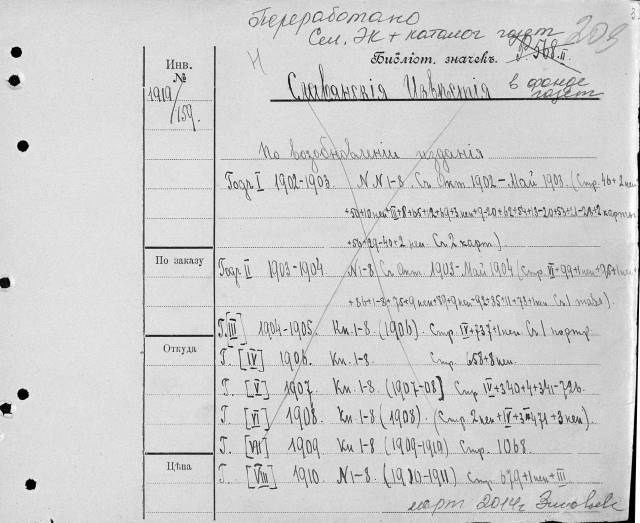 Переработано
Сем. ЭК + каталог газет
203
Н
Библіот. значекъ. 568.II
в фонде газет
Инв. №
1919/159.
Славянскія Извѣстія
По возобновленіи изданія
Годъ I 1902-1903. N.N 1-8. Съ Окт 1902 - Май 1903 (Стр. 46 + 2 нен
+50+10нен+III+8+65+12+69+3 нен+9-20+62+54+13-20+53+21-28+2 карты
+56+29-40+2 нен. Съ 2 карт.).
По заказу
Годъ II 1903-1904. N 1-8 (Съ Окт. 1903-Май 1904 (Стр. II+99+1нен+
+1-8+75+9нен+89+9нен+92+85+11+73+1нен Съ 1 табл).
Г. [III] 1904-1905. Кн. 1-8. (1906). Стр. IV+737+1нен Съ 1 портр.
Откуда
Г. [IV] 1906. Кн. 1-8. Стр. 658+8нен.
Г. [V] 1907. Кн. 1-8 (1907-08] Стр IV+340+4+341-726.
Г. [VI] 1908. Кн. 1-8 (1908). (Стр. 2 нен+IV+471+3 нен).
Г. [VII] 1909 Кн 1-8 (1909-1910) Стр. 1068.
Цѣна
Г. [VIII] 1910. N 1-8. (1910-1911) Стр. 679+1нен+III
март 2014г